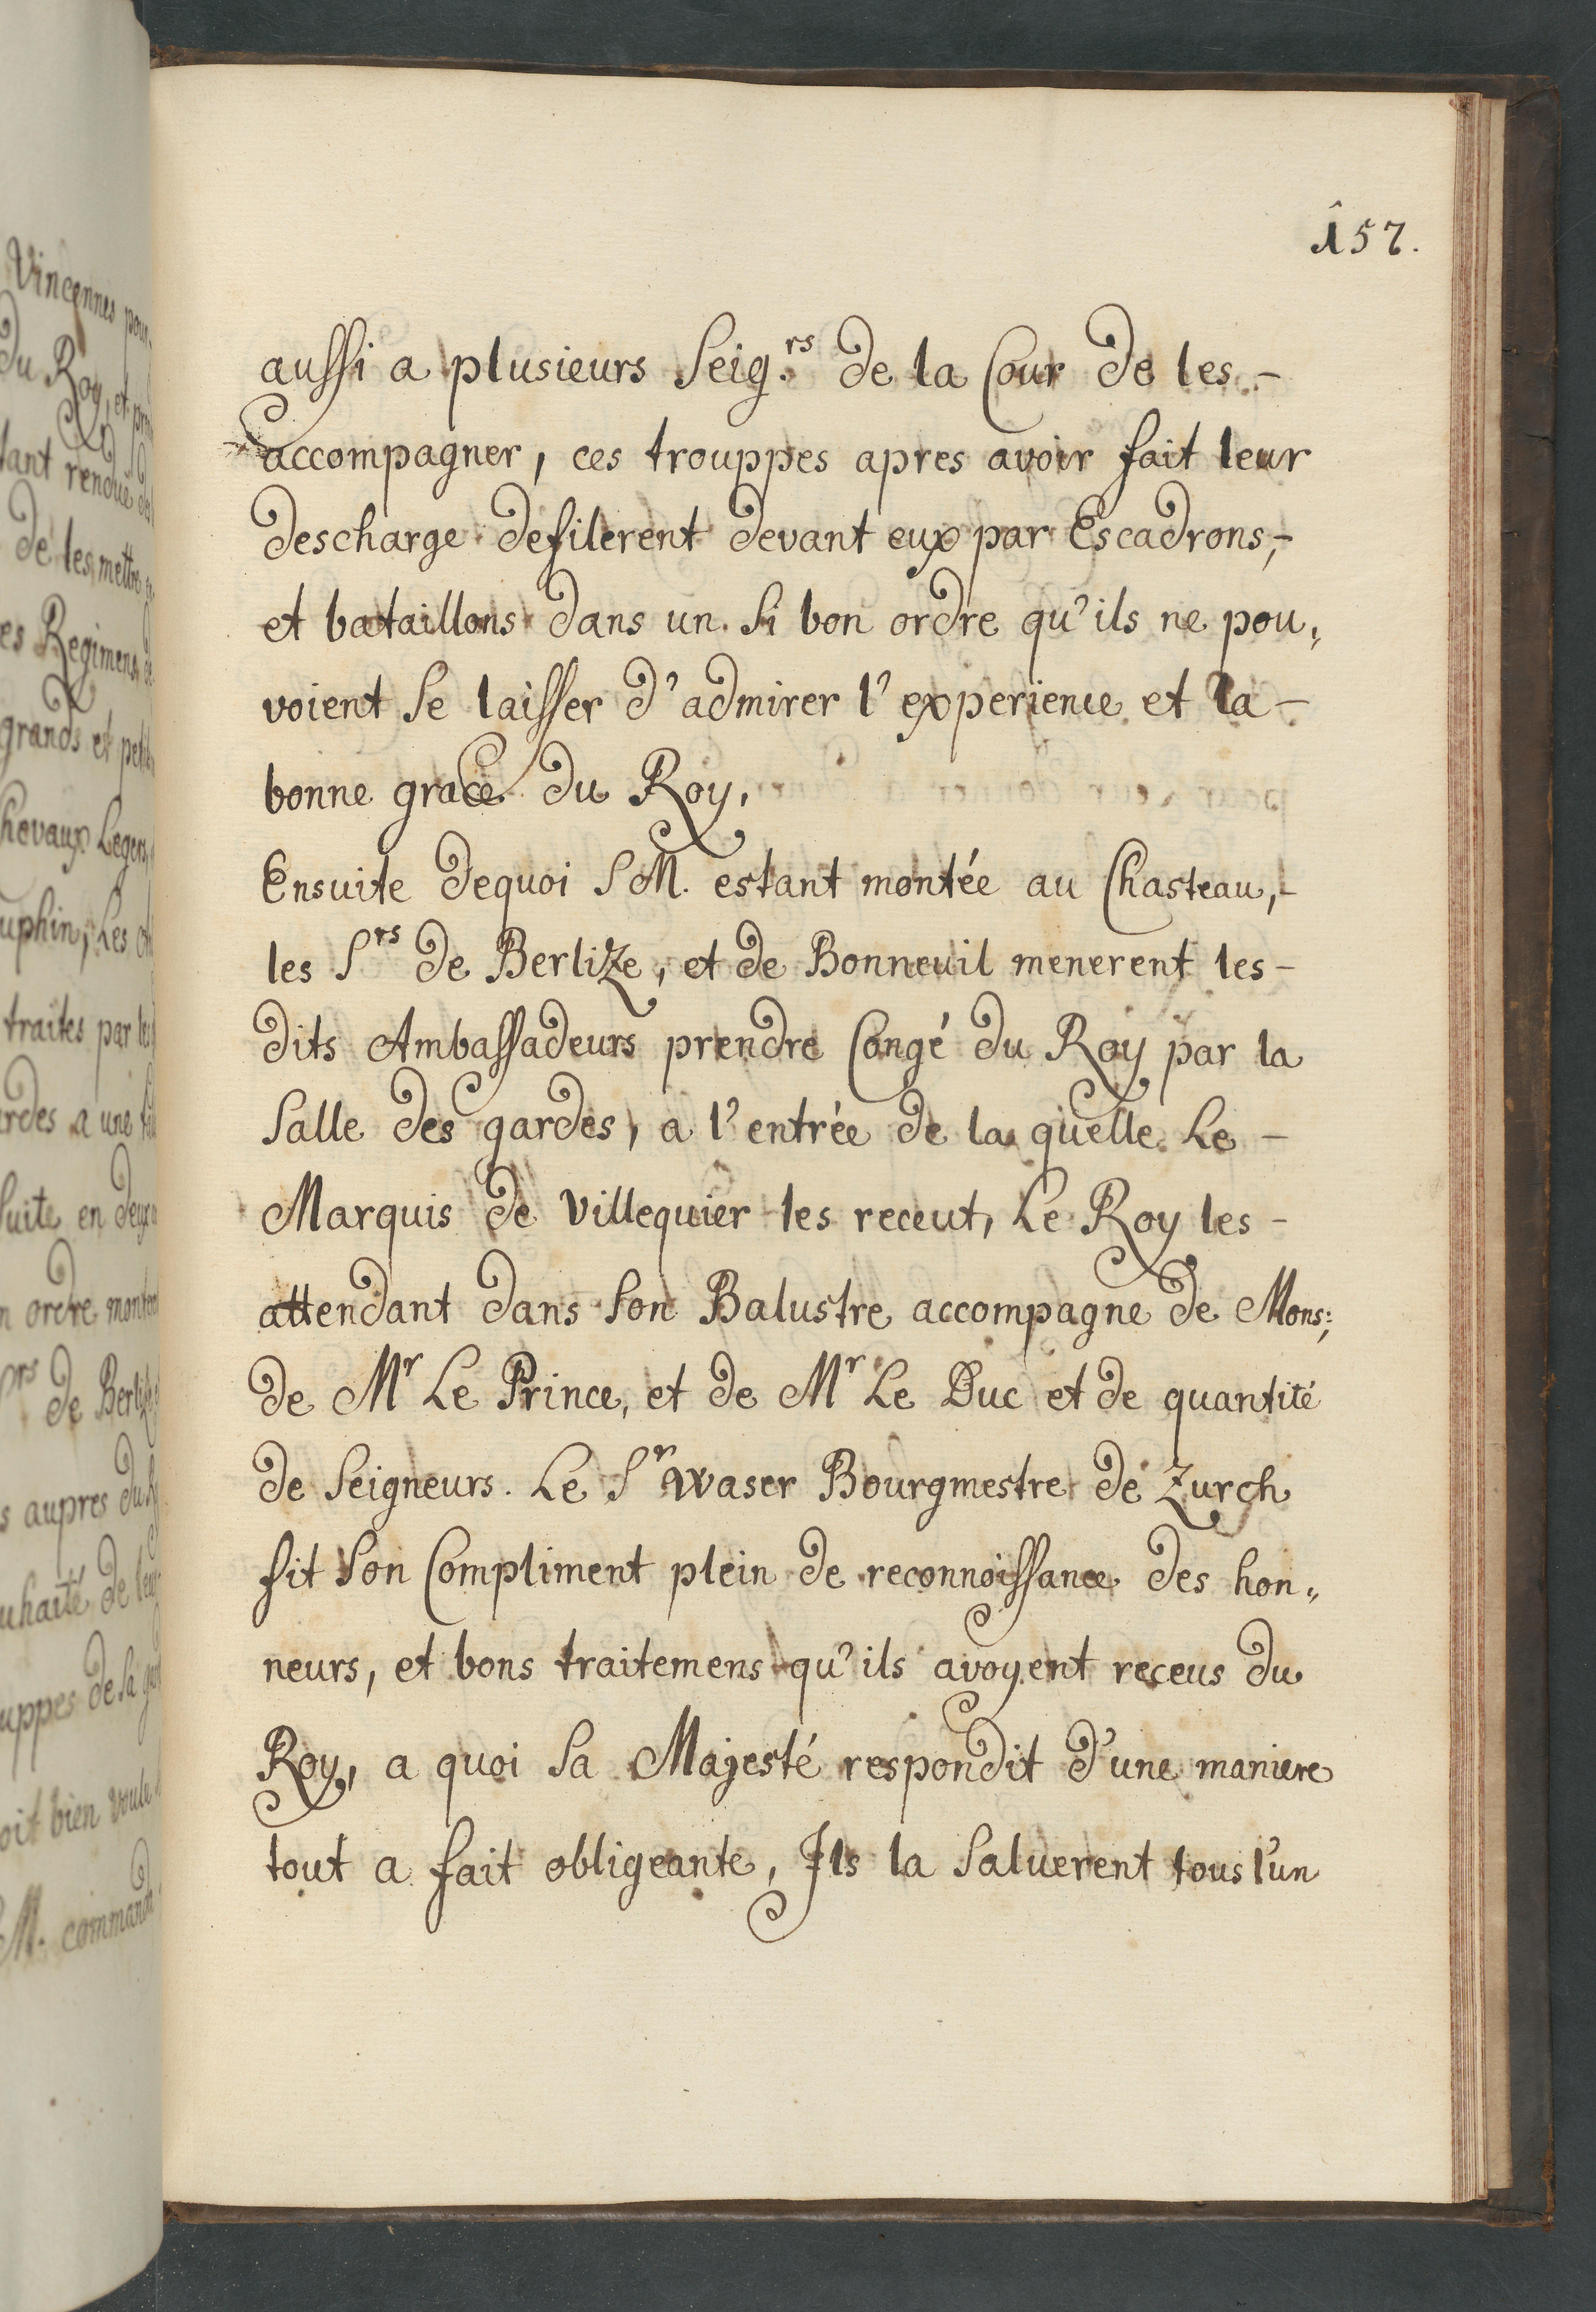 157.
aussi a plusieurs Seig.rs de la Cour de les -
accompagner, ces trouppes apres avoir fait leur
descharge defilerent devant eux par Escadrons, -
et bataillons dans un si bon ordre qu'ils ne pou„
voient se laisser d'admirer l'experience et la -
bonne grace du Roy,
Ensuite dequoi SM. estant montée au Chasteau, -
les Srs de Berlize, et de Bonneuil menerent les -
dits Ambassadeurs prendre Congé du Roy par la
Salle des gardes, a l'entrée de la quelle Le -
Marquis de Villequier les receut, Le Roy les -
attendant dans son Balustre accompagne de Mons:,
de Mr Le Prince, et de Mr Le Duc et de quantité
de Seigneurs. Le Sr Waser Bourgmestre de Zurch
fit son Compliment plein de reconnoissance des hon„
neurs, et bons traitemens qu'ils avoyent receus du
Roy, a quoi sa Majesté respondit d'une maniere
tout a fait obligeante, Ils la saluerent tous l'un